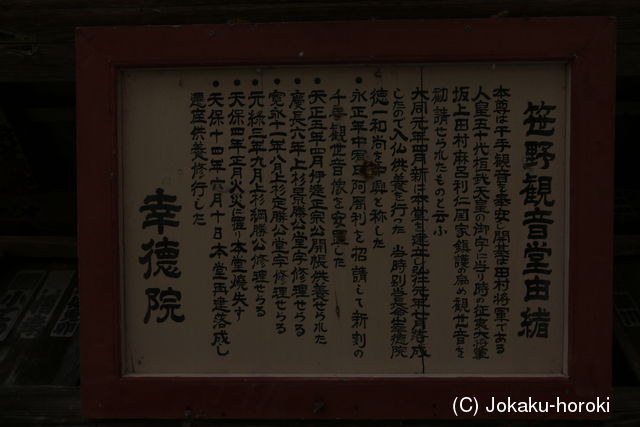 笹野観音堂由緒
本尊は千手観音を奉安し開基は田村将軍である
人皇五十代桓武天皇の御宇に当り時の征夷大将軍
坂上田村麻呂利仁国家鎮護の為め観世音を
勧請せられたものと云ふ
大同元年四月新に本堂を建立し弘仁元年七月落成
したので入仏供養を行った 当時別当を命幸徳院
徳一和尚を中興と称した
・永正年中宥日阿闍利を招請して新刻の
千手観世音像を安置した
・天正五年四月伊達正宗公開帳供養せられた
・慶長六年上杉景勝公堂宇修理せらる
・寛永十一年八月上杉定勝公堂宇修理せらる
・元禄三年九月上杉綱勝公修理せらる
・天保四年正月火災に罹り本堂焼失す
・天保十四年六月十日本堂再建落成し
遷座供養修行した
幸德院
(C) Jokaku-horoki